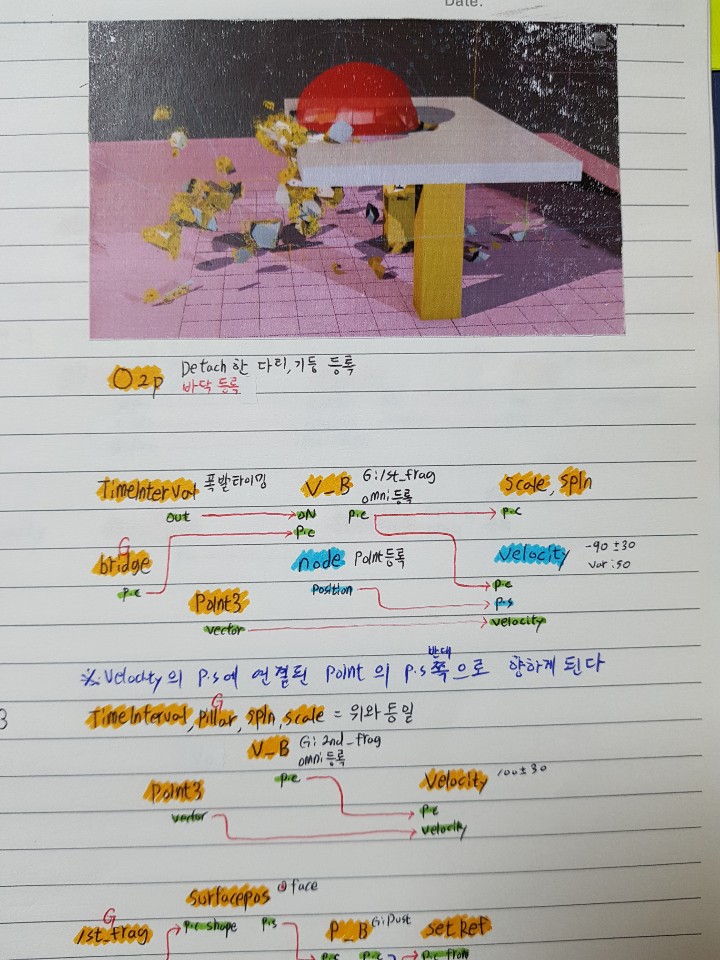 Date.
O2p Detach 한 다리, 기둥 등록
바닥 등록
TimeInterval 폭발타이밍 V_B G:1st_frag omni 등록 scale, spin
out ON p.c p.c
p.c
G
bridge node Point 등록 velocity -90 ±30
var:50
p.c position p.c
Point3 p.s
vector velocity
※. Velocity 의 p.s에 연결된 Point 의 p.s 반대쪽으로 향하게 된다
3
G
TimeInterval, pillar, spin, scale = 위와 동일
V_B G: 2nd_frag
omni 등록
p.c
Point3 Velocity 100±30
vector p.c
velocity
surfacepos @face
G
1st_frag p.c shape p.s P_B G:Dust set Ref
p.c p.c p.c from